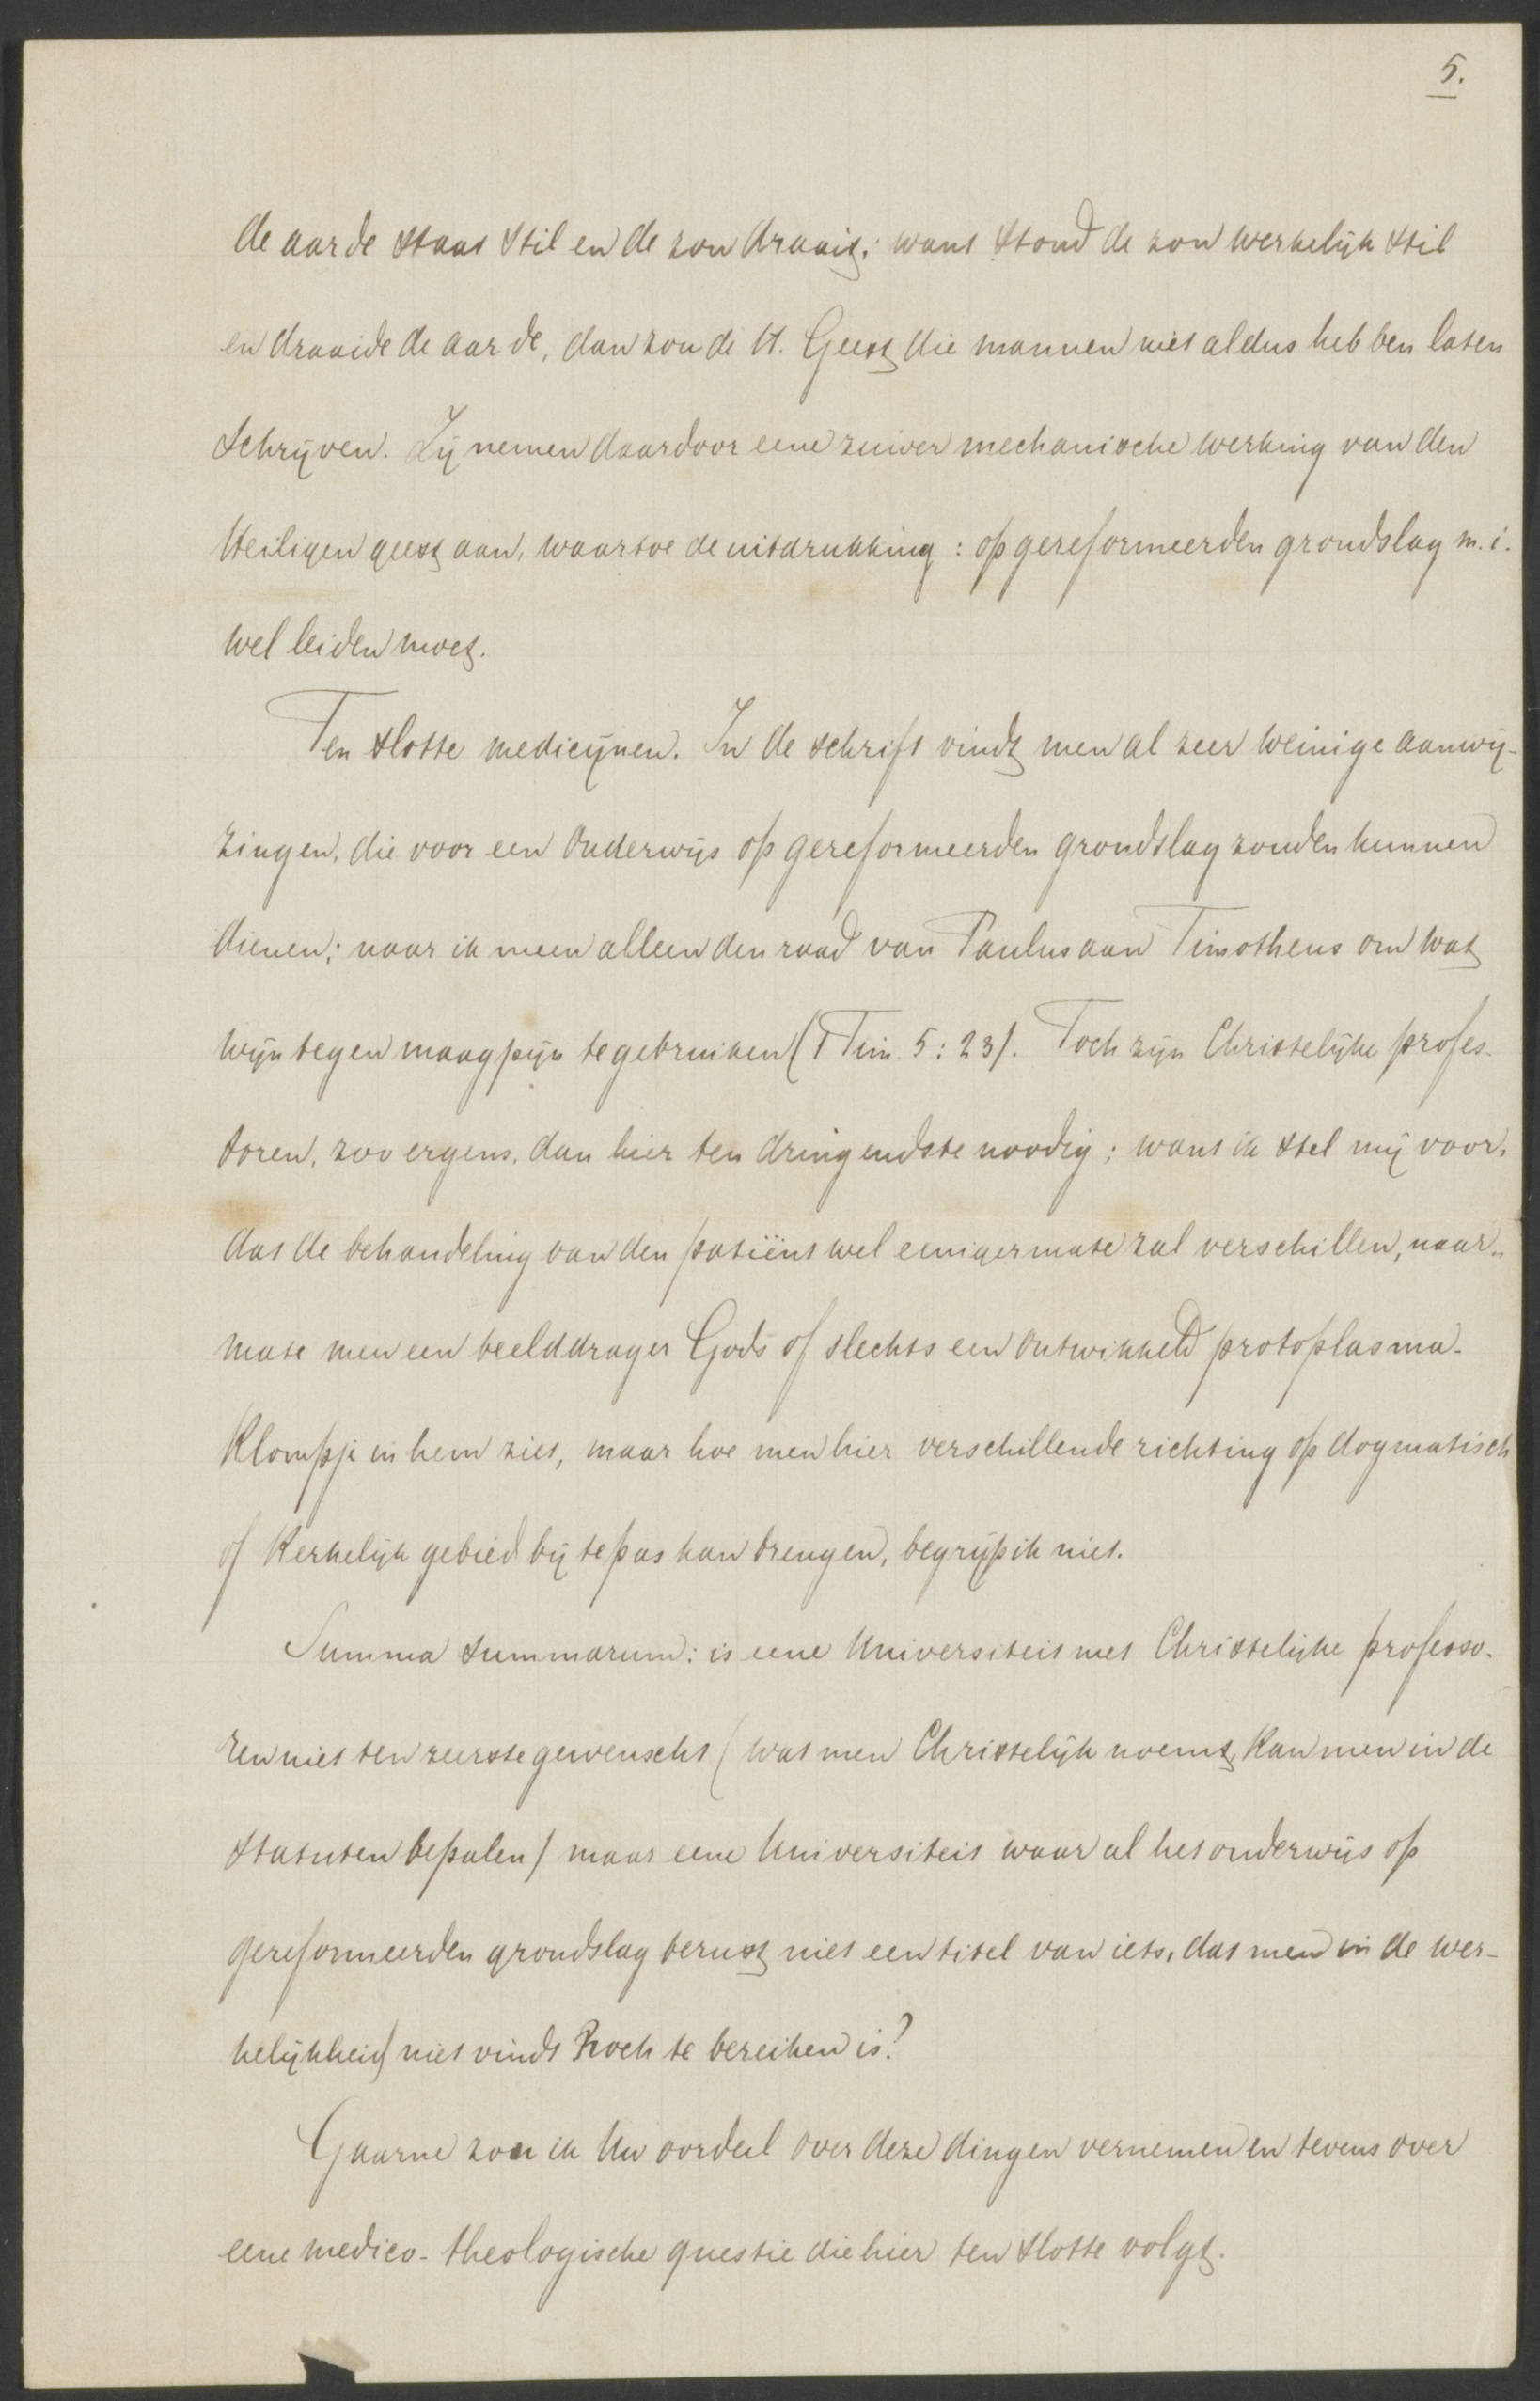 5.
de aarde staat stil en de zon draait; want stond de zon werkelijk stil
en draaide de aarde, dan zou de H. Geest die mannen niet aldus hebben laten
schrijven. Zij nemen daardoor eene zuiver mechanische werking van den
Heiligen geest aan, waartoe de uitdrukking: op gereformeerden grondslag m.i.
wel leiden moet.
Ten slotte medicijnen. In de schrift vindt men al zeer weinige aanwij-
zingen, die voor een onderwijs op gereformeerden grondslag zouden kunnen
dienen; naar ik meen alleen den raad van Paulus aan Timotheus om wat
wijn tegen maagpijn te gebruiken (1 Tim. 5:23). Toch zijn Christelijke profes-
soren, zoo ergens, dan hier ten dringendste noodig; want ik stel mij voor,
dat de behandeling van den patiënt wel eenigermate zal verschillen, naar-
mate men een beelddrager Gods of slechts een ontwikkeld protoplasma-
klompje in hem ziet, maar hoe men hier verschillende richting op dogmatisch
of kerkelijk gebied bij te pas kan brengen, begrijp ik niet.
Summa summarum: is eene Universiteit met Christelijke professo-
ren niet ten zeerste gewenscht (wat men Christelijk noemt, kan men in de
statuten bepalen) maar eene Universiteit waar al het onderwijs op
gereformeerden grondslag berust niet een titel van iets, dat men in de wer-
kelijkheid niet vindt noch te bereiken is?
Gaarne zou ik Uw oordeel over deze dingen vernemen en tevens over
eene medico-theologische questie die hier ten slotte volgt.